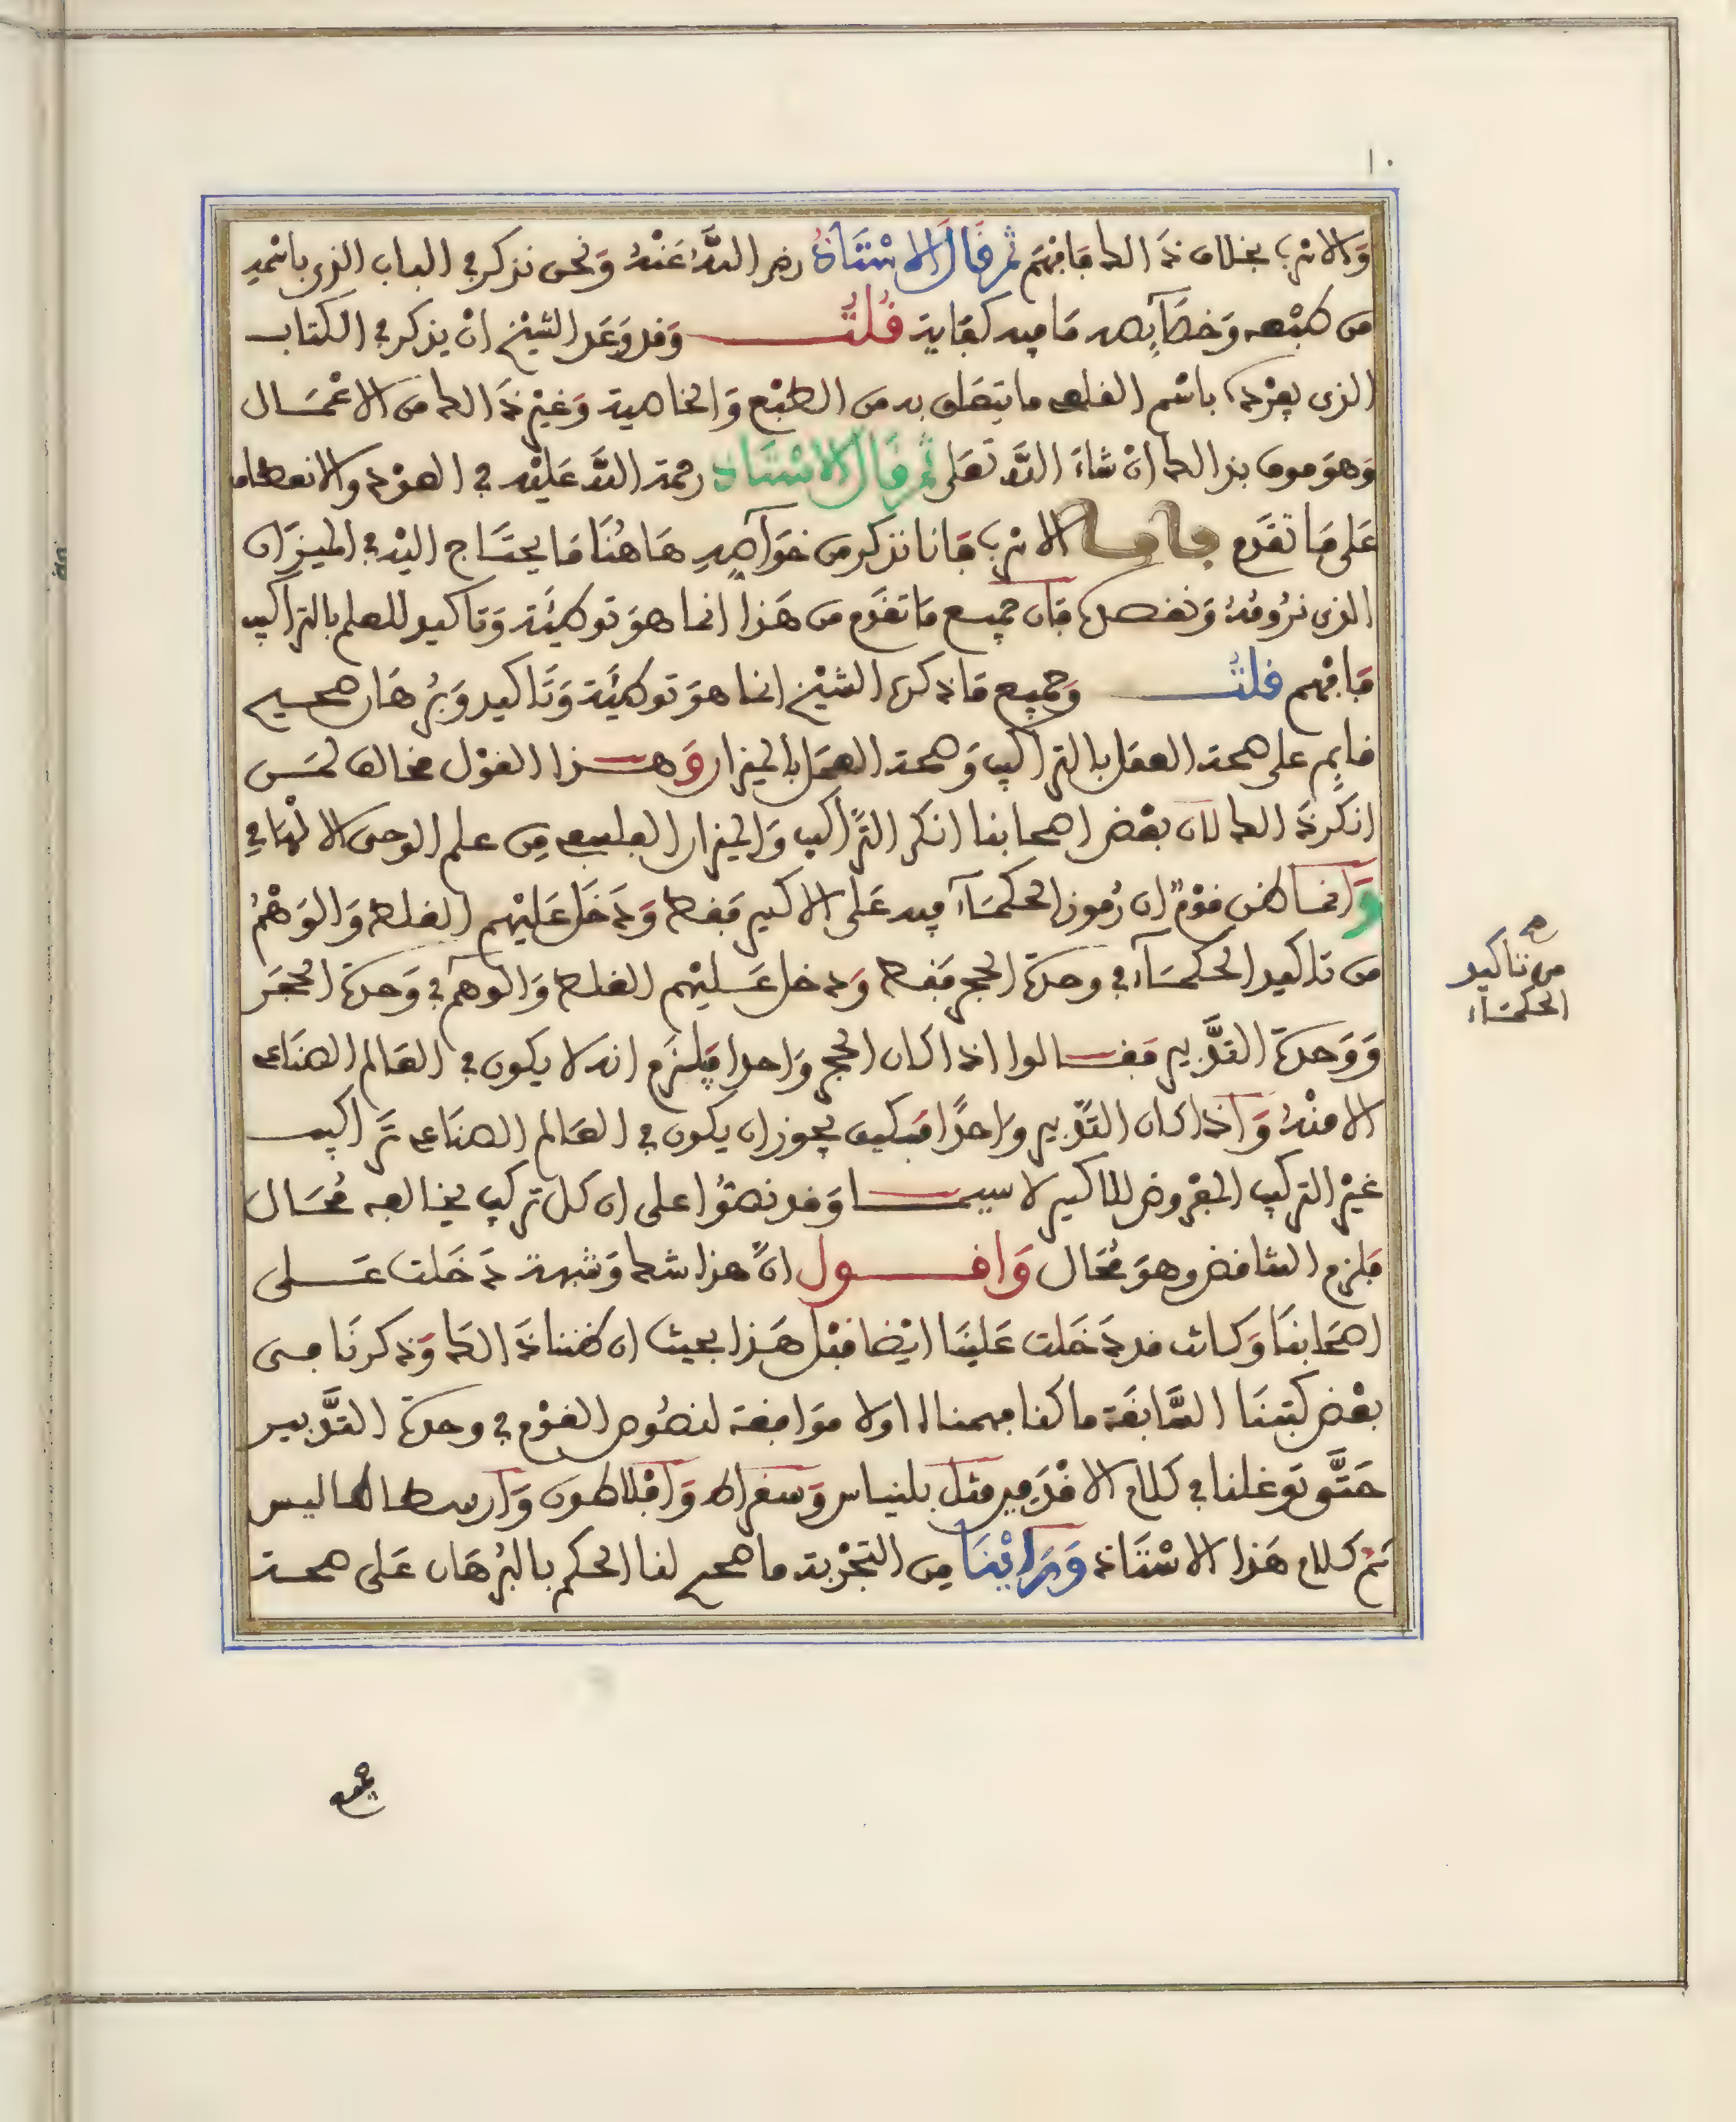 ١٠
وَالاسرب بخلاف ذَالك فَافهَم ثم قَالَ الاسْتَاذُ رضي اللَّهُ عَنْهُ وَنحن نذكر في الباب الذي باسْمه
من طبْعه وَخصَآيصه مَا فيه كفَاية قُلْتُ وَقد وَعَد الشيْخ انْ يذكر في الكتاب
الذي يفرْده باسْم القلعي ما يتعَلق به من الطبْع وَالخاصية وَغيْر ذَالك من الاعْمَال
وَهوَ موف بذالك انْ شاءَ اللَّه تعَلى ثم قال الاسْتَاذ رحمة اللَّه عَليْه في العوْد والانعطاف
عَلى مَا تقَدم فاما الاسرب فَانا نذكر من خوَآصهِ هَاهُنَا مَا يحتَاج اليْه في الميزَان
الذي نرُومُهُ وَنقصده فَان جميع مَا تقدم من هَذا انما هوَ توطئَة وَتاكيد للعلم بالتراكيب
فَافهم قلتُ وَجميع مَا ذكره الشيْخ انما هوَ توطئَة وَتَاكيد وَبرُهَان صحيح
قايم على صحة العمَل بالتراكيب وَصحة العمَل بالميزان وَهذا القوْل مخالف لمَن
انكر ذَالك لان بعْض اصحابنا انكر الترَّاكيب وَالميزان الطبيعي مِن علم الوحي الالهَامي
وَانما ظن قوْمٌ ان رُموز الحكمَآء فيه عَلى الاكسير فقط وَدَخَل عَليْهم الغلط وَالوَهْمُ
من تاكيد الحكمَآء في وحدة الحجر فقط وَدخل عَليْهم الغلط وَالوهم في وَحدة الحجَر
وَوَحدة التدَّبير فقالوا اذا كان الحجر وَاحدا فيلزم انه لا يكون في العَالم الصنَاعي
الا منْهُ وَاذا كان التدَّبير وَاحدًا فبكيف يجوز ان يكون في العَالم الصنَاعي ترَاكيب
غيْر التركيب المفرُوض للاكسير لا سيما وَقد نصوُا على ان كل تركيب يخالفه مُحَال
فيلزم التناقض وهوَ مُحَال وَاقول انّ هذا شك وَشبهة دَخَلت عَلى
اصحَابنَا وَكانت قد دَخَلت عَليْنَا ايْضا قبْل هَذا بحيث ان ظننا ذَالك وَذكرنَا في
بعْض كتبنَا السَّابقَة ما كنا فهمناه اولا موَافقة لنصُوص القوْم في وحدة التدَّبير
حَتَّى توَغلنا في كلام الاقدَمين مثل بلنياس وَسقراط وَافْلاطون وَارسطاطاليس
ثمَّ كلام هَذا الاسْتَاذ وَرَايْنَا مِن التجْربة ما صح لنا الحكم بالبُرْهَان عَلى صحة
صح
من تاكيد
الحكمَآء